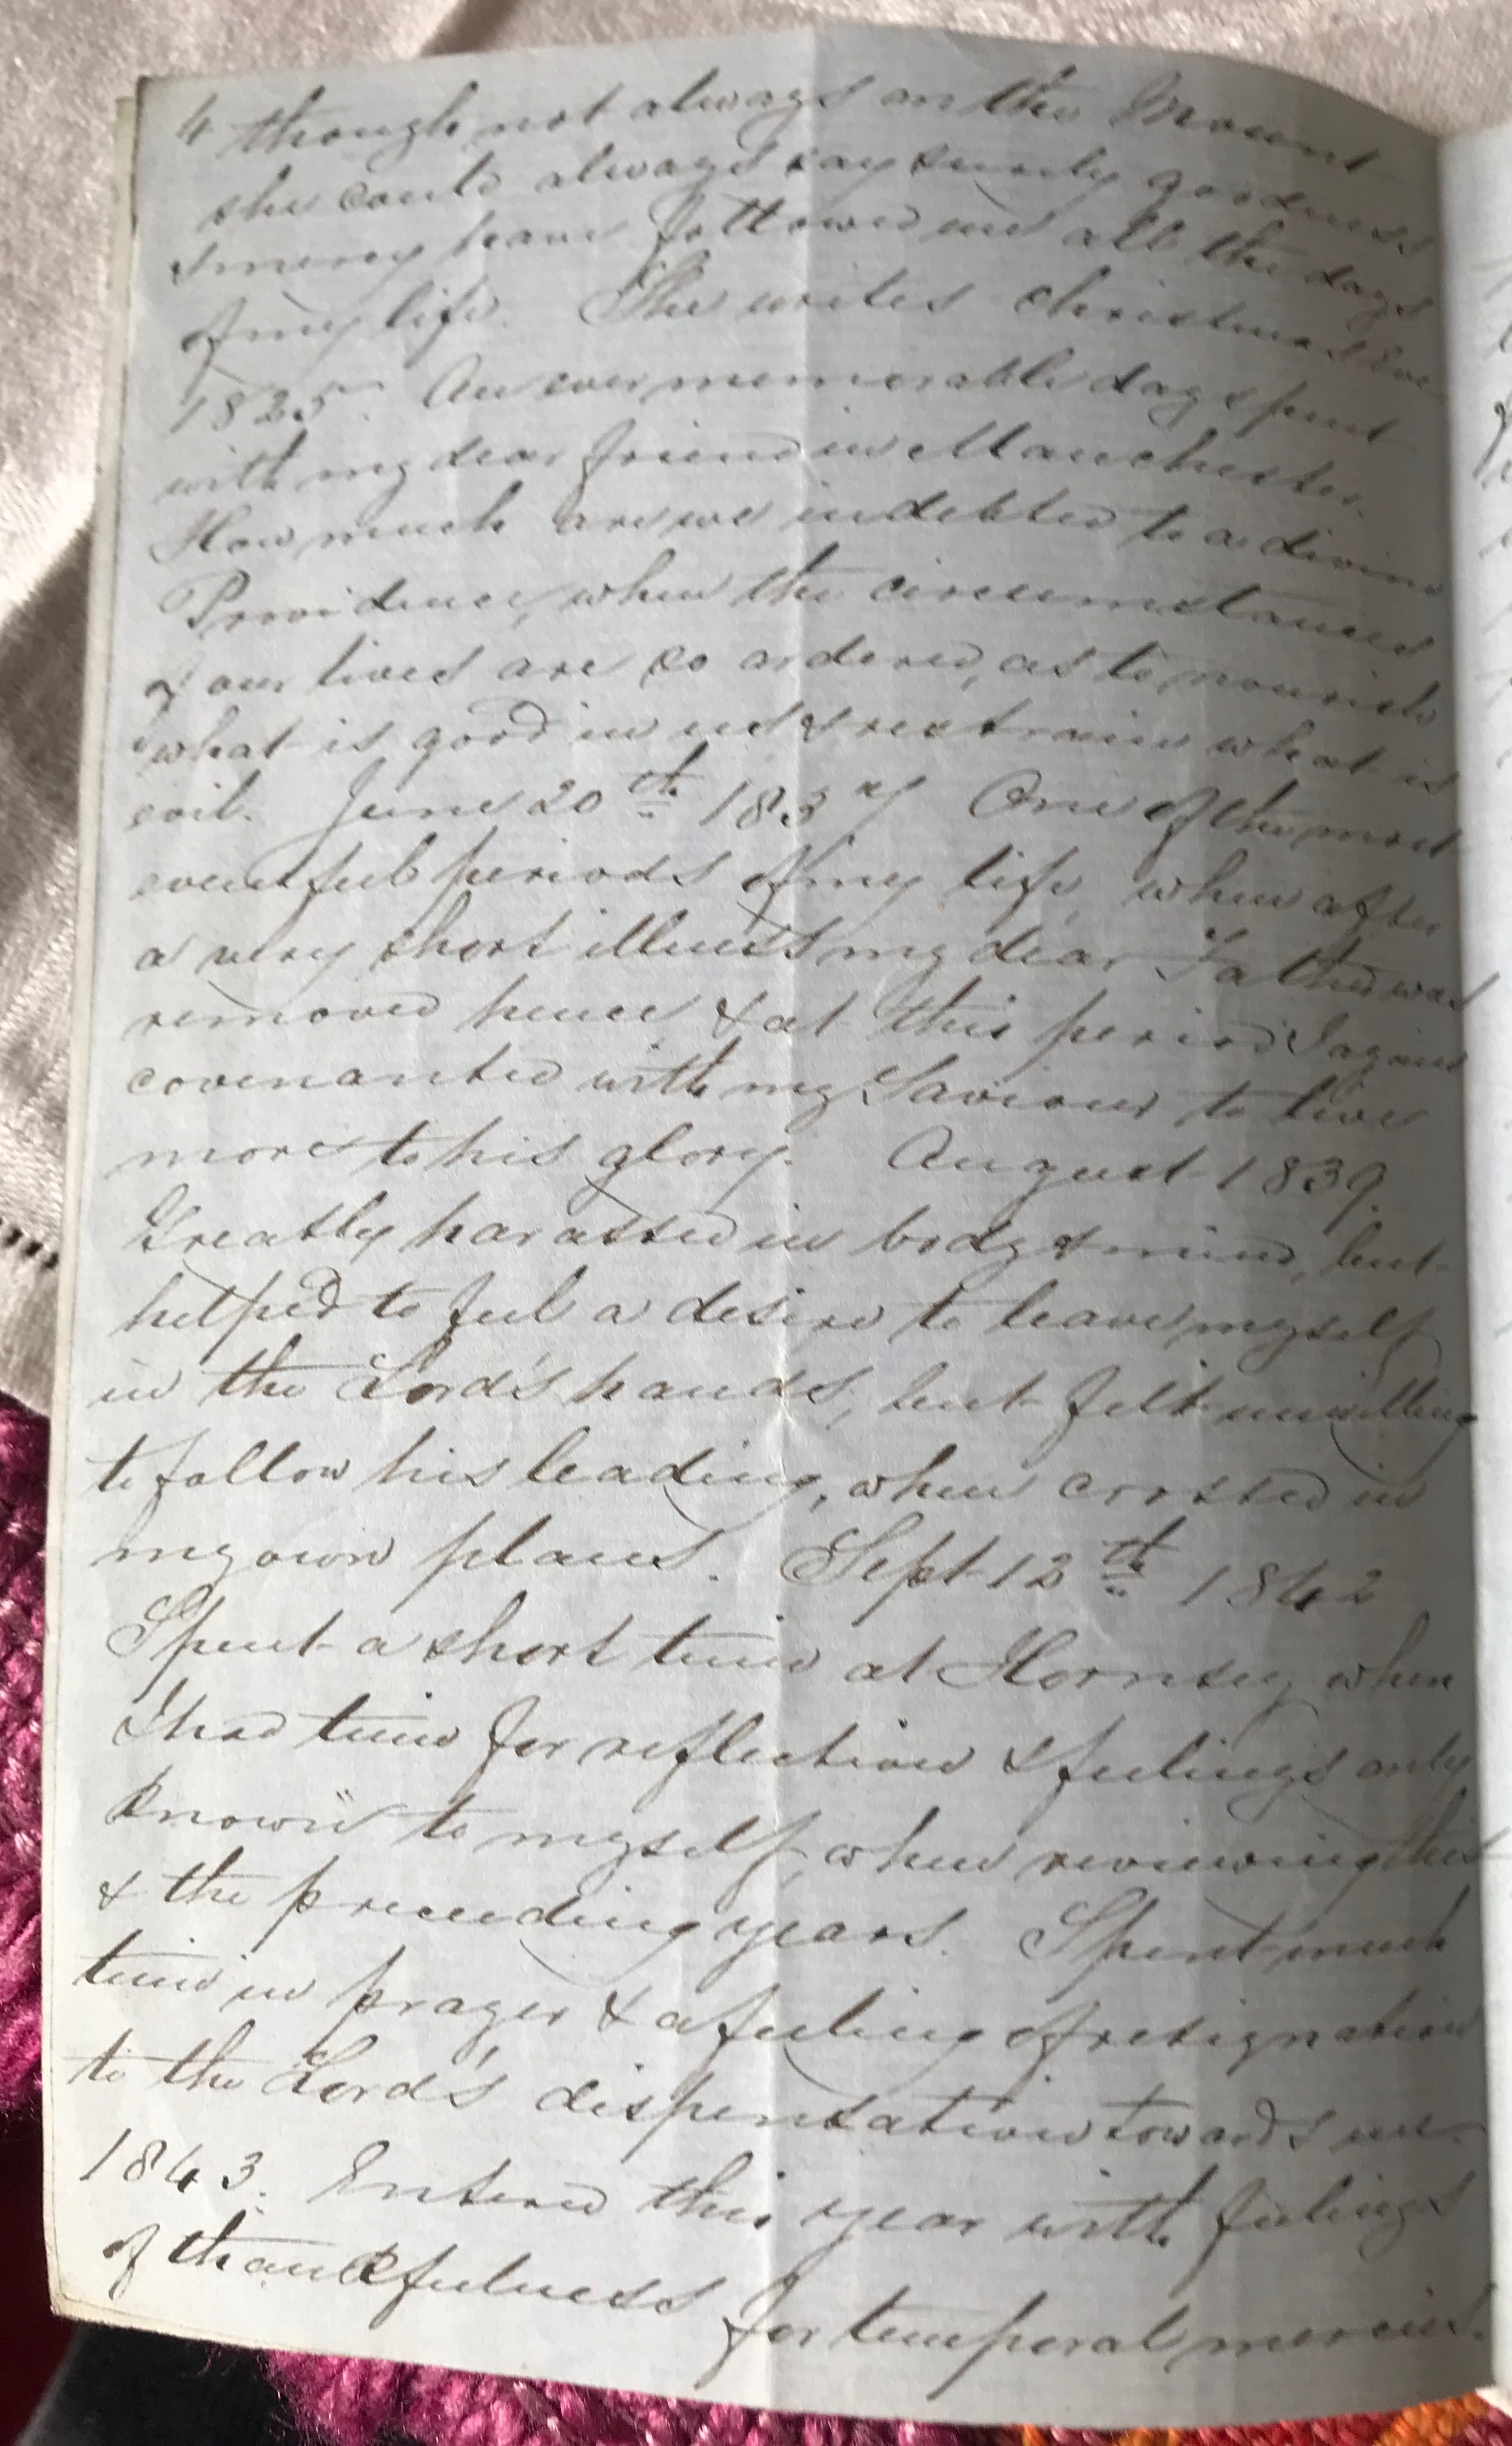 4 though not always on the Mount
she could always say surely goodness
& mercy have followed me all the days
of my life. She writes Christmas Eve
1825. An ever memorable day spent
with my dear friend in Manchester.
How much are we indebted to a divine
Providence, when the circumstances
of our lives are so ordered, as to nourish
what is good in us & restrain what is
evil. June 20th 1837 One of the most
eventful periods of my life, when after
a very short illness my dear Father was
removed hence, & at this period I again
covenanted with my Saviour to live
more to his glory. August 1839.
Greatly harassed in body & mind, but
helped to feel a desire to leave myself
in the Lord's hands, but felt unwilling
to follow his leading, when crossed in
my own plans. Sept 12th 1842
Spent a short time at Hornsey when
I had time for reflection & feelings only
known to myself, when reviewing this
& the preceeding years. Spent much
time in prayer & a feeling of resignation
to the Lord's dispensation towards me.
1843. Entered this year with feelings
of thankfulness for temporal mercies.